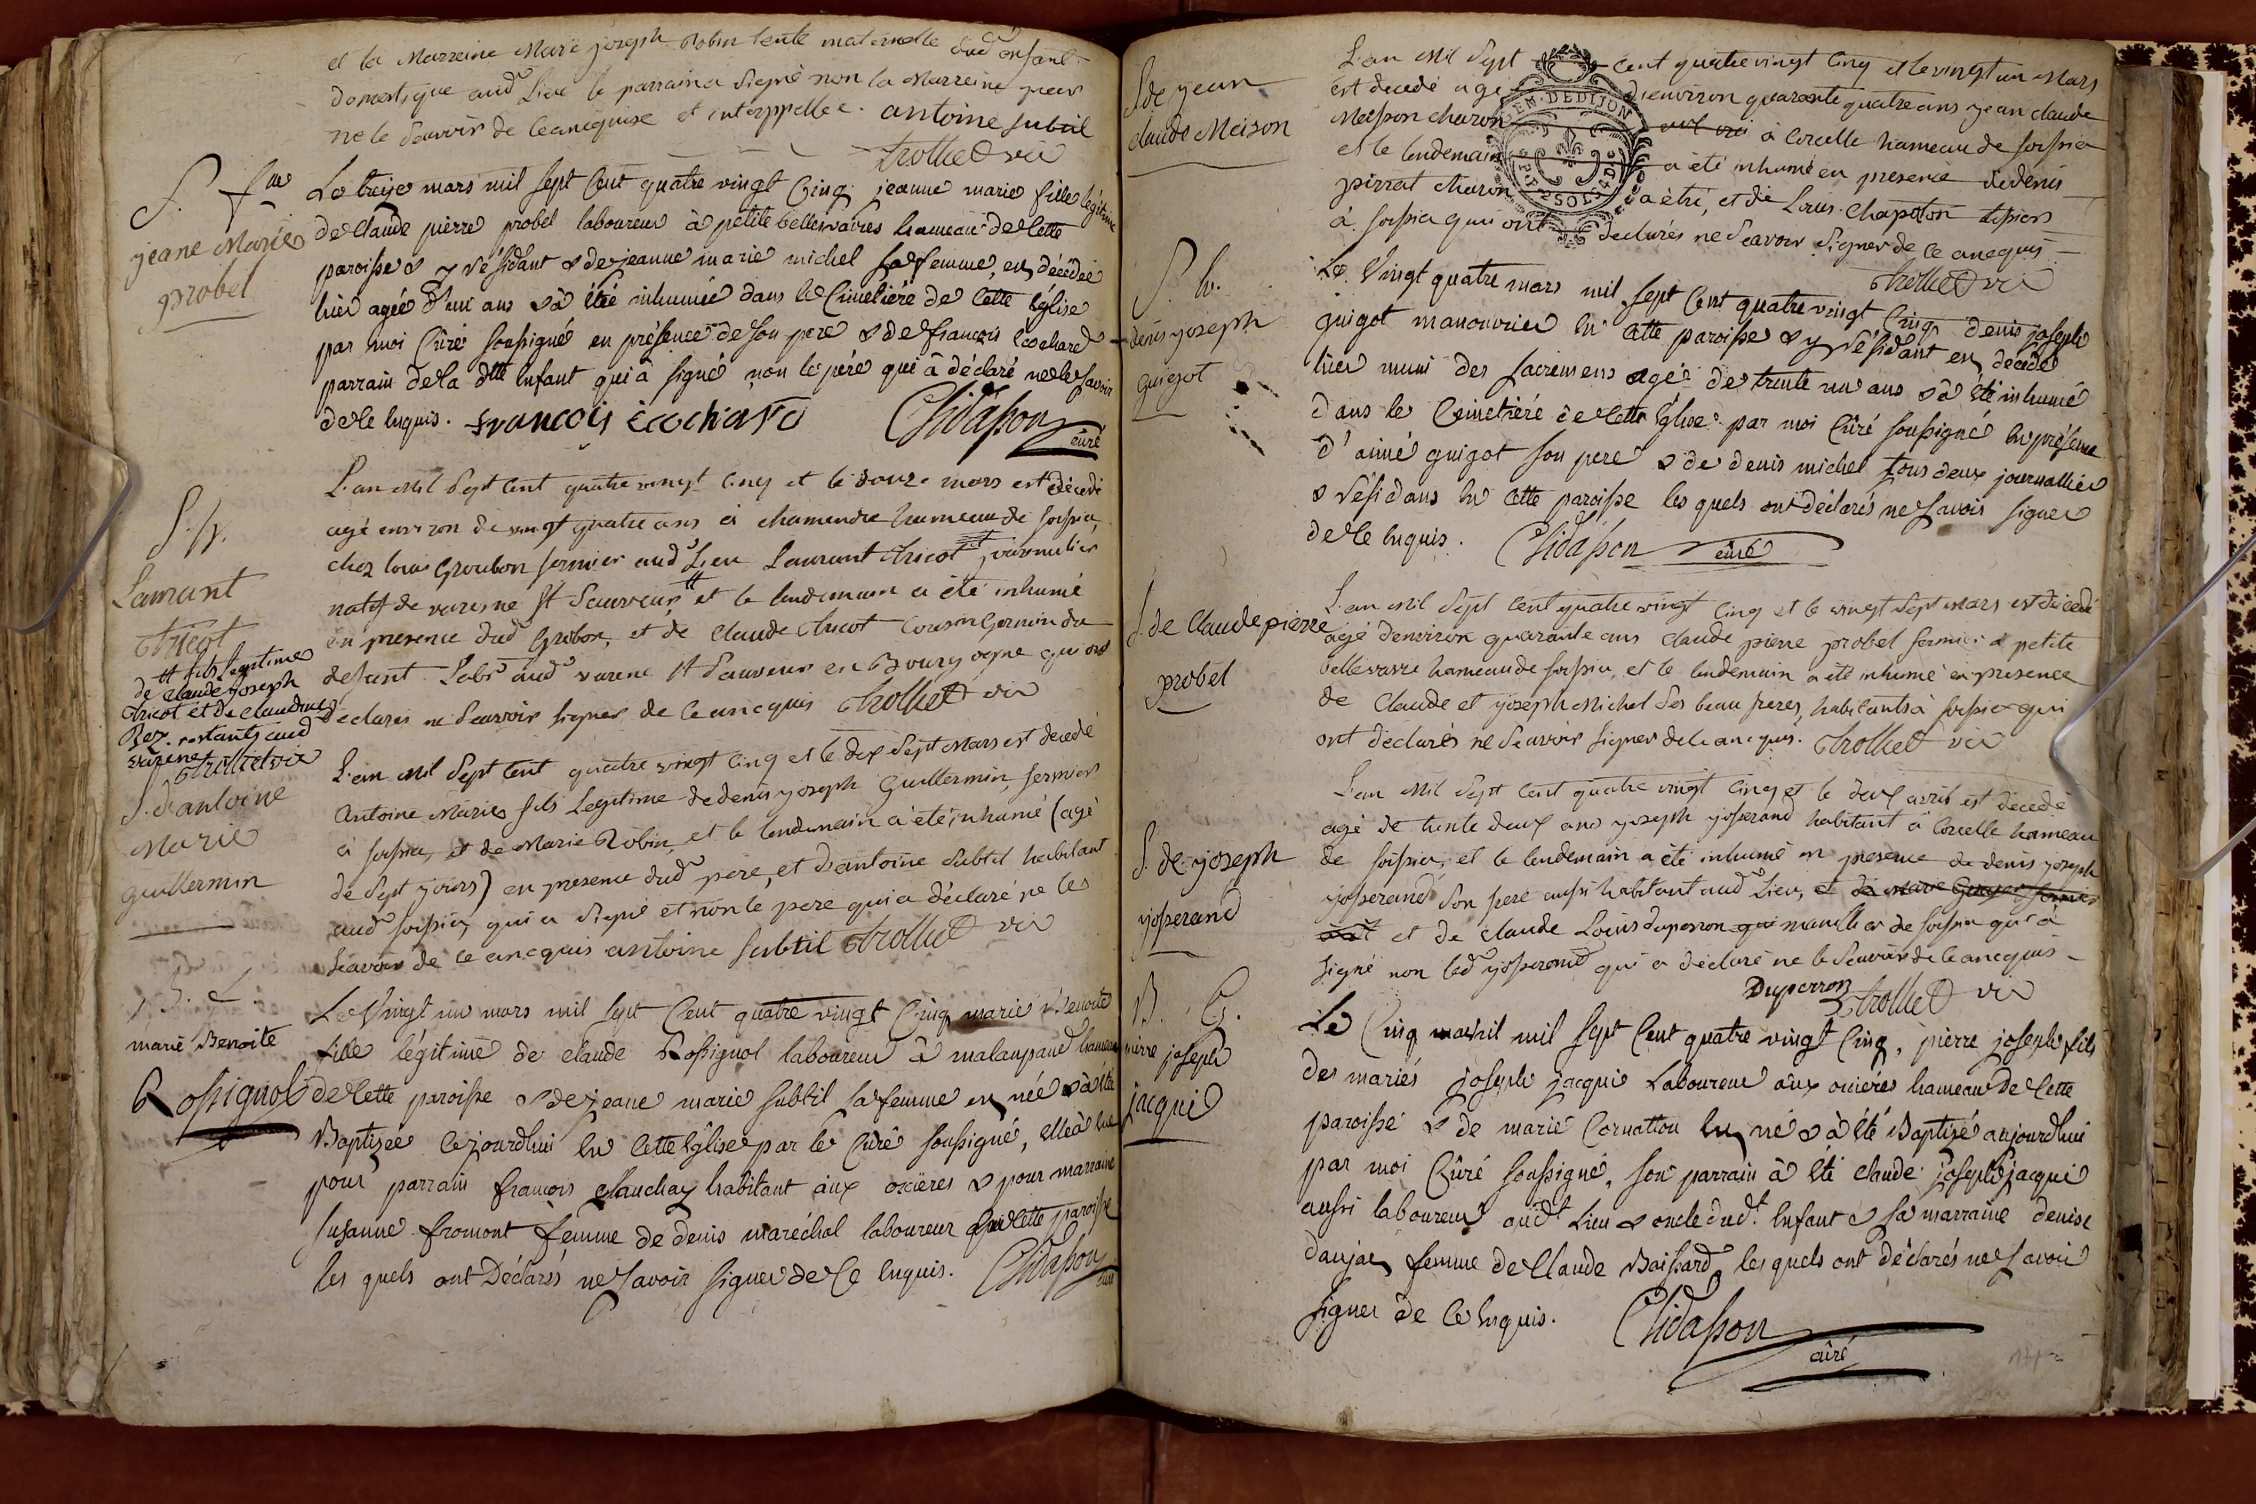 et la Marreine Marie joseph Robin tente maternelle dud enfant
domestique aud Lieu le parrain a signé non la Marreine pour
ne le sçavoir de ce anequise et interppellee. antoine subtil
trollied vic
S. fme
jeane Marie
probel
Le treize mars mil sept Cent quatre vingt Cinq jeanne marie fille légitime
de Claude pierre probel laboureur à petite bellevaires hameau de Cette
paroisse & y résidant & de jeanne marie michel sa femme, en décédée
hier agée d'un ans & à étée inhumée dans le Cimetiére de Cette église
par moi Curé soussigné en présence de son pere & de françois
parrain de la dtte Enfant qui à signé non le pére qui à déclaré ne le savoir
de Ce Enquis. françois
Chidasson
curé
S. h.
Laurant
tricot
tt fils legitime
de claude joseph
tricot et de claudine
Rey. restants aud
varene
trollied vic
L'an Mil Sept Cent quatre vingt Cinq et le douze mars est décedé
agé environ de vingt quatre ans à chamendre hameau de
chez louis Groubon fermier aud Lieu Laurant tricot
natif de varesne St Sauveur tt et le lendemain a été inhumé
en presence dud Grobon, et de Claude tricot Cousin Germin du
defunt. Labr aud varene St Sauveur en Bourgogne qui ont
declarés ne sçavoir signer de ce anequis trollied vic
S. d'antoine
Marie
guillermin
L'an Mil Sept Cent quatre vingt Cinq et le dix Sept Mars est decedé
Antoine Marie fils Legitime de denis joseph Guillermin, fermier
à et de Marie Robin, et le lendemain a été inhumé (agé
de Sept jours) en presence dud pere, et D'antoine Subtil habitant
aud qui a signé et non le pere qui a déclaré ne le
sçavoir de ce anequis antoine subtil trollied vic
marie Benoite
Rossignol
Le Vingt un mars mil sept Cent quatre vingt Cinq marie Benoite
fille légitime de claude Rossignol laboureur à malaupaud hameau
de Cette paroisse & de jeane marie subtil sa femme en née & à été
Baptizée Cejourdhui En Cette église par le Curé soussigné, elle à eue
pour parrain francois habitant aux & pour marraine
susanne fromont femme de denis maréchal laboureur Cette paroisse
les quels ont Déclarés ne savoir signer de Ce Enquis. Chidasson
curé
S. de jean
claude Meison
L'an Mil Sept Cent quatre vingt Cinq et le vingt un Mars
est decedé agé d'environ quarante quatre ans jean claude
charon à Corcelle hameau de
et le lendemain a été inhumé en presence de denis
charon et de Louis Chapoton
à qui ont declarés ne sçavoir signer de ce anequis
trollied vic
GEN. DE DIJON
S. h.
denis joseph
guigot
Le Vingt quatre mars mil sept Cent quatre vingt Cinq denis joseph
guigot manouvrier En Cette paroisse & y résidant en décédé
hier muni des sacremens agé de trente un ans & à été inhumé
dans le Cimetiére de Cette église par moi Curé soussigné En présence
d'aimé guigot son pere & de denis michel tous deux journallier
& résidans En Cette paroisse les quels ont déclarés ne savoir signer
de Ce Enquis. Chidasson
curé
S. de Claude pierre
probel
L'an Mil Sept Cent quatre vingt Cinq et le vingt Sept Mars est décedé
agé denviron quarante ans Claude pierre probel fermier à petite
bellevavre hameau de et le lendemain a été inhumé en presence
de Claude et joseph Michel ses beau freres, habitants à qui
ont declarés ne sçavoir signer de ce anequis. trollied vic
S. de joseph
josserand
L'an Mil Sept Cent quatre vingt Cinq et le deux avril est decedé
agé de trente deux ans joseph josserand habitant à Corcelle hameau
de et le lendemain a été inhumé en presence de denis joseph
josserand son pere aussi habitant aud Lieu, et de Marie
et de Claude Louis duperron qui de qui a
signé non led josserand qui a declaré ne le sçavoir de ce anequis
Duperron
trollied vic
B. G.
pierre joseph
jacqui
Le Cinq avril mil sept Cent quatre vingt Cinq, pierre joseph fils
des mariés joseph jacqui Laboureur aux hameau de Cette
paroisse & de marie Cornatton En né & à été Baptizé aujourdhui
par moi Curé soussigné, son parrain à été claude joseph jacqui
aussi laboureur audt Lieu & oncle dudt Enfant & sa marraine denise
danjac femme de Claude Boissard les quels ont déclarés ne savoir
signer de Ce Enquis. Chidasson
curé